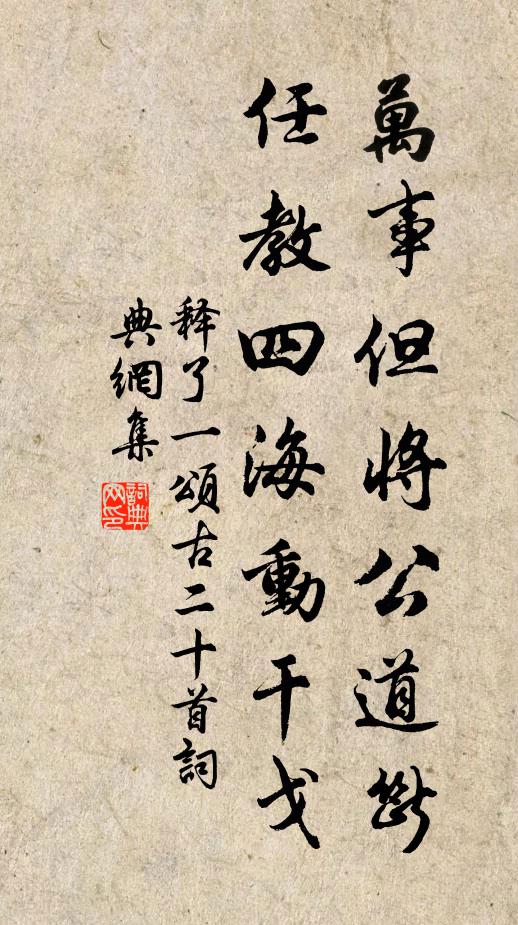 萬事但將公道斷
任教四海動干戈
释了一頌古二十首詞
典網集
詞典
网印